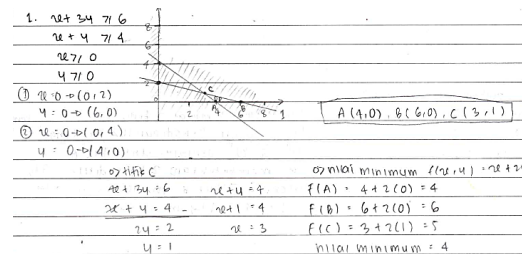 1. x + 3y ≥ 6
x + y ≥ 4
x ≥ 0
y ≥ 0
① x=0→(0,2)
y=0→(6,0)
② x=0→(0,4)
y=0→(4,0)
8
6
4
2
C
A B
2 4 6 8
A(4,0), B(6,0), C(3,1)
titik C
x + 3y = 6 x+y = 4
x + y = 4 - x+1 = 4
2y = 2 x = 3
y = 1
nilai minimum f(x,y) = x+2
f(A) = 4 + 2(0) = 4
f(B) = 6 + 2(0) = 6
f(C) = 3 + 2(1) = 5
nilai minimum = 4